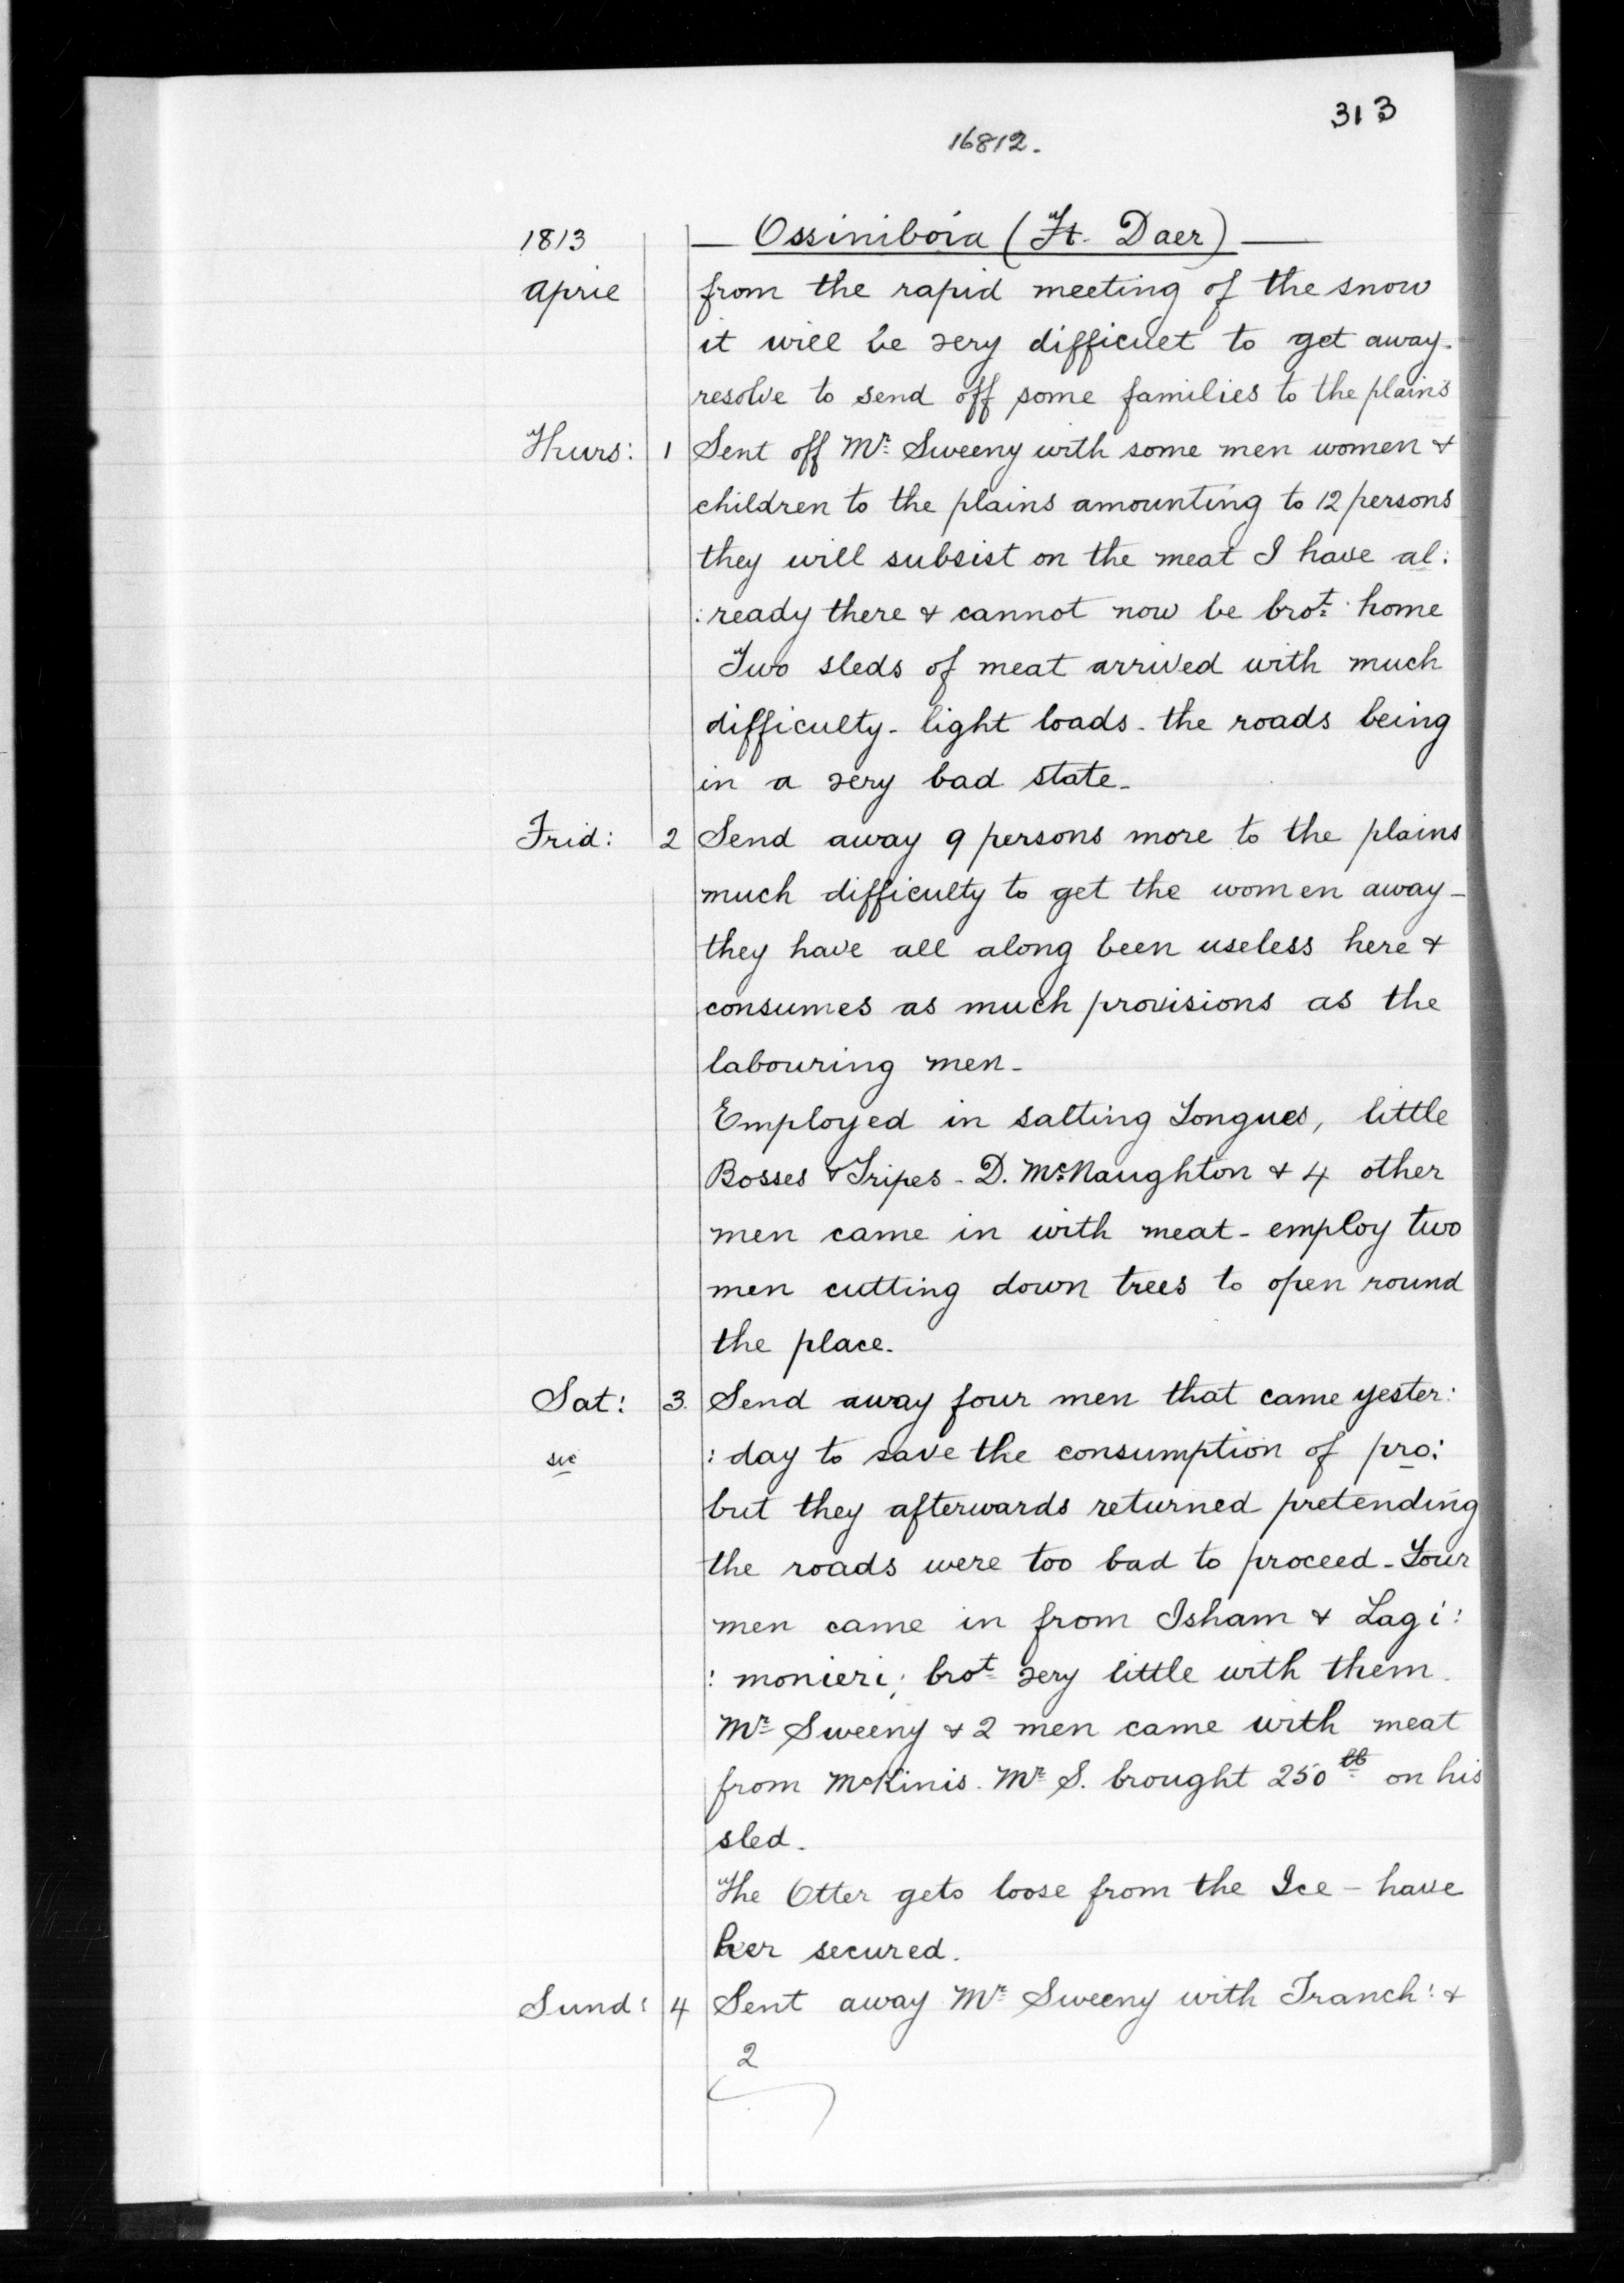 313
16812.
1813 — Ossiniboia (Ft. Daer) —
April from the rapid meeting of the snow
it will be very difficult to get away.
resolve to send off some families to the plains
Thurs: 1 Sent off Mr. Sweeny with some men women &
children to the plains amounting to 12 persons
they will subsist on the meat I have al:
:ready there & cannot now be brot. home
Two sleds of meat arrived with much
difficulty - light loads - the roads being
in a very bad state -
Frid: 2 Send away 9 persons more to the plains
much difficulty to get the women away -
they have all along been useless here &
consumes as much provisions as the
labouring men -
Employed in salting Tongues, little
Bosses & Tripes - D. McNaughton & 4 other
men came in with meat - employ two
men cutting down trees to open round
the place.
Sat: 3. Send away four men that came yester:
sic :day to save the consumption of pro:
but they afterwards returned pretending
the roads were too bad to proceed - Four
men came in from Isham & Lagi:
:monieri; brot. very little with them.
Mr. Sweeny & 2 men came with meat
from McKinis. Mr. S. brought 250 lb on his
sled.
The Otter gets loose from the Ice - have
her secured.
Sund: 4 Sent away Mr. Sweeny with Tranch: &
2